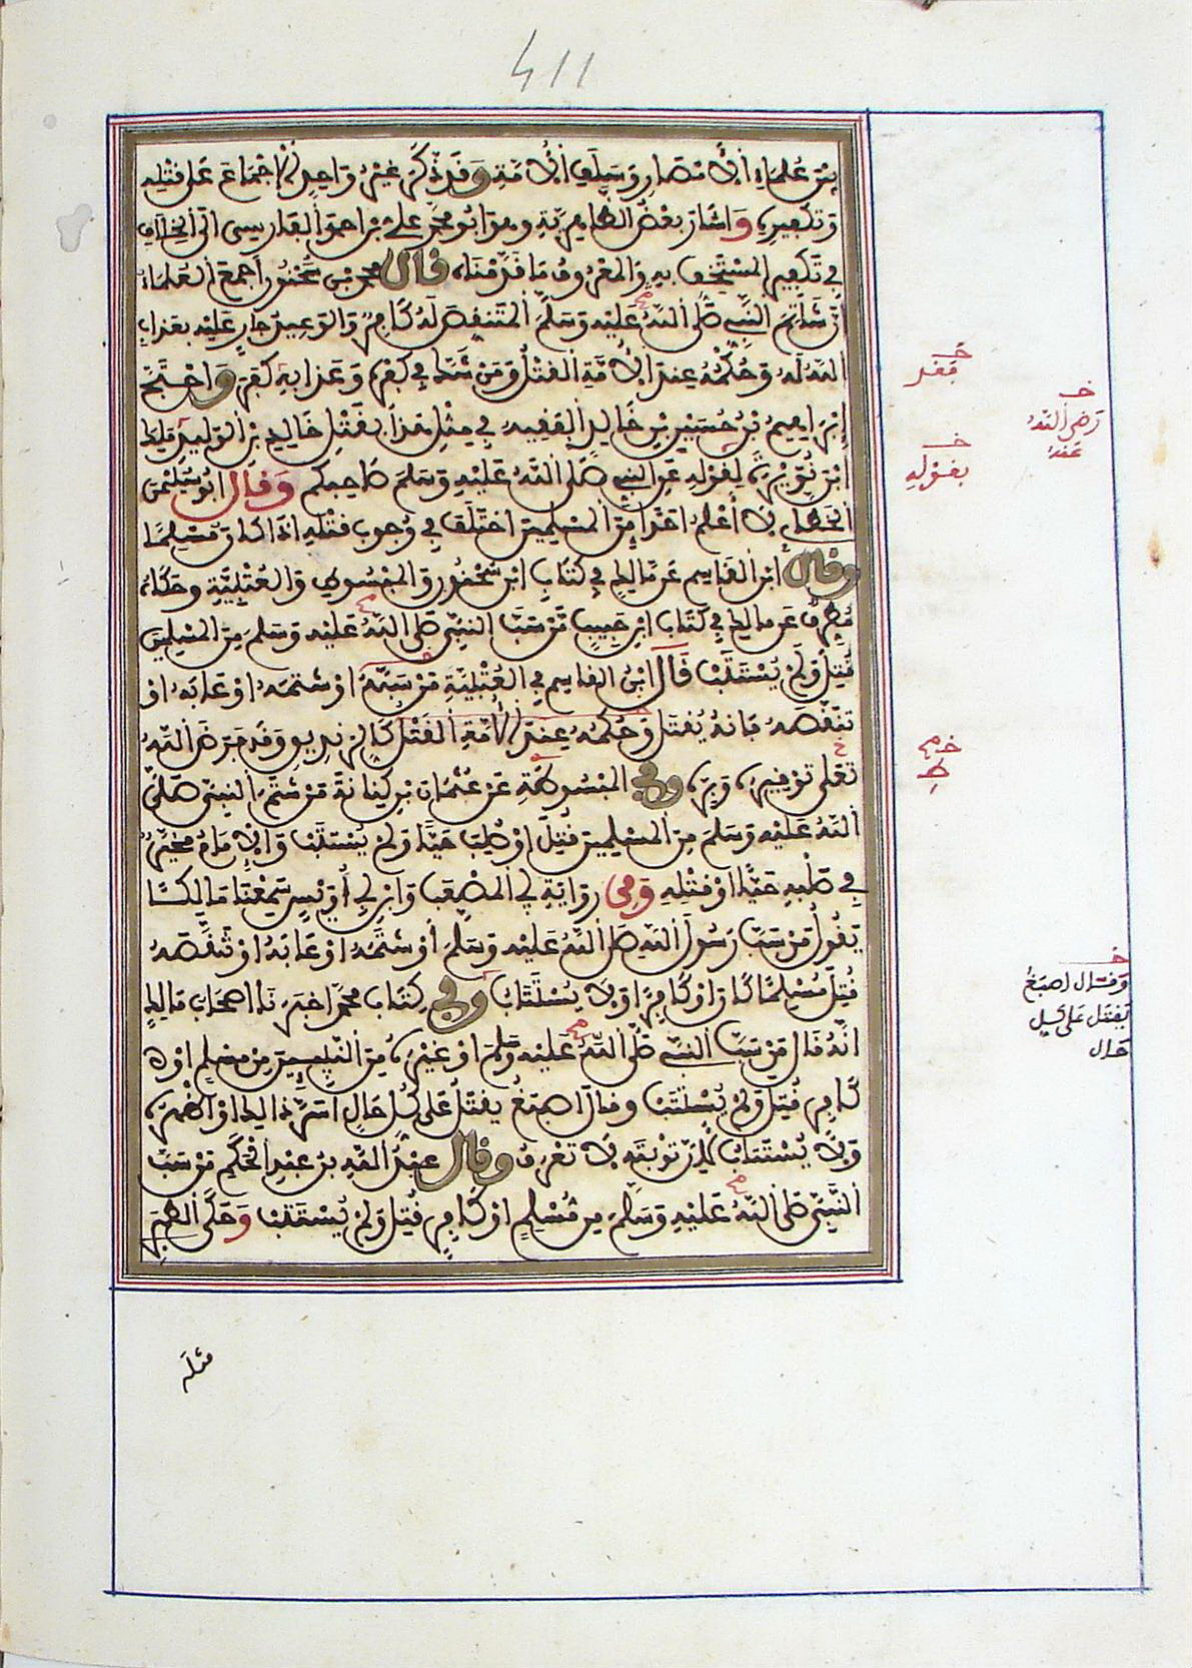 411
بين علماء الامصار وسلف الامة وقد ذكر غير واحد الاجماع على قتله
وتكفيره واشار بعض الظاهرية وهو ابو محمد علي بن احمد الفارسي الى الخلاف
في تكفير المستخف به والمعروف ما قدمناه قال محمد بن سحنون اجمع العلماء
ان شاتم النبي صلى الله عليه وسلم المتنقص له كافر والوعيد جار عليه بعذاب
الله له وحكمه عند الامة القتل ومن شك في كفره وعذابه كفر واحتج
ابراهيم بن حسين بن خالد الفقيه في مثل هذا بقتل خالد بن الوليد مالك
ابن نويرة لقوله عن النبي صلى الله عليه وسلم صاحبكم وقال ابو سليمن
الخطابي لا أعلم احدا من المسلمين اختلف في وجوب قتله اذا كان مسلما
وقال ابن القاسم عن مالك في كتاب ابن سحنون والمبسوط والعتبية وحكاه
مطرف عن مالك في كتاب ابن حبيب من سب النبي صلى الله عليه وسلم من المسلمين
قتل ولم يستتب قال ابن القاسم في العتبية من سبه او شتمه او عابه او
تنقصه فانه يقتل وحكمه عند الامة القتل كالزنديق وقد فرض الله
تعلى توقيره وبره وفي المبسوطة عن عثمان بن كنانة من شتم النبي صلى
الله عليه وسلم من المسلمين قتل او صلب حيا ولم يستتب والامام مخير
في صلبه حيا او قتله ومن رواية ابي المصعب وابن ابي أويس سمعنا مالكا
يقول من سب رسول الله صلى الله عليه وسلم أو شتمه او عابه او تنقصه
قتل مسلما كان او كافرا ولا يستتاب وفي كتاب محمد اخبرنا اصحاب مالك
انه قال من سب النبي صلى الله عليه وسلم او غيره من النبيين من مسلم او
كافر قتل ولم يستتب وقال اصبغ يقتل على كل حال اسر ذالك او اظهره
ولا يستتاب لان توبته لا تعرف وقال عبد الله بن عبد الحكم من سب
النبي صلى الله عليه وسلم من مسلم او كافر قتل ولم يستتب وحكى الطبري
خ
فقد
خ
رضي الله
عنه
خ
بقوله
خ
وقال اصبغ
يقتل على كل
حال
مثله